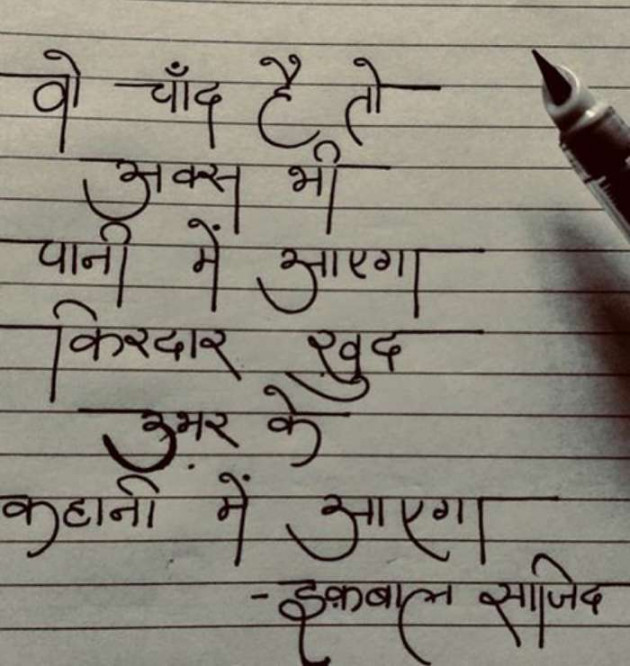 वो चाँद है तो
अक्स भी
पानी में आएगा
किरदार ख़ुद
उभर के
कहानी में आएगा
- इक़बाल साजिद